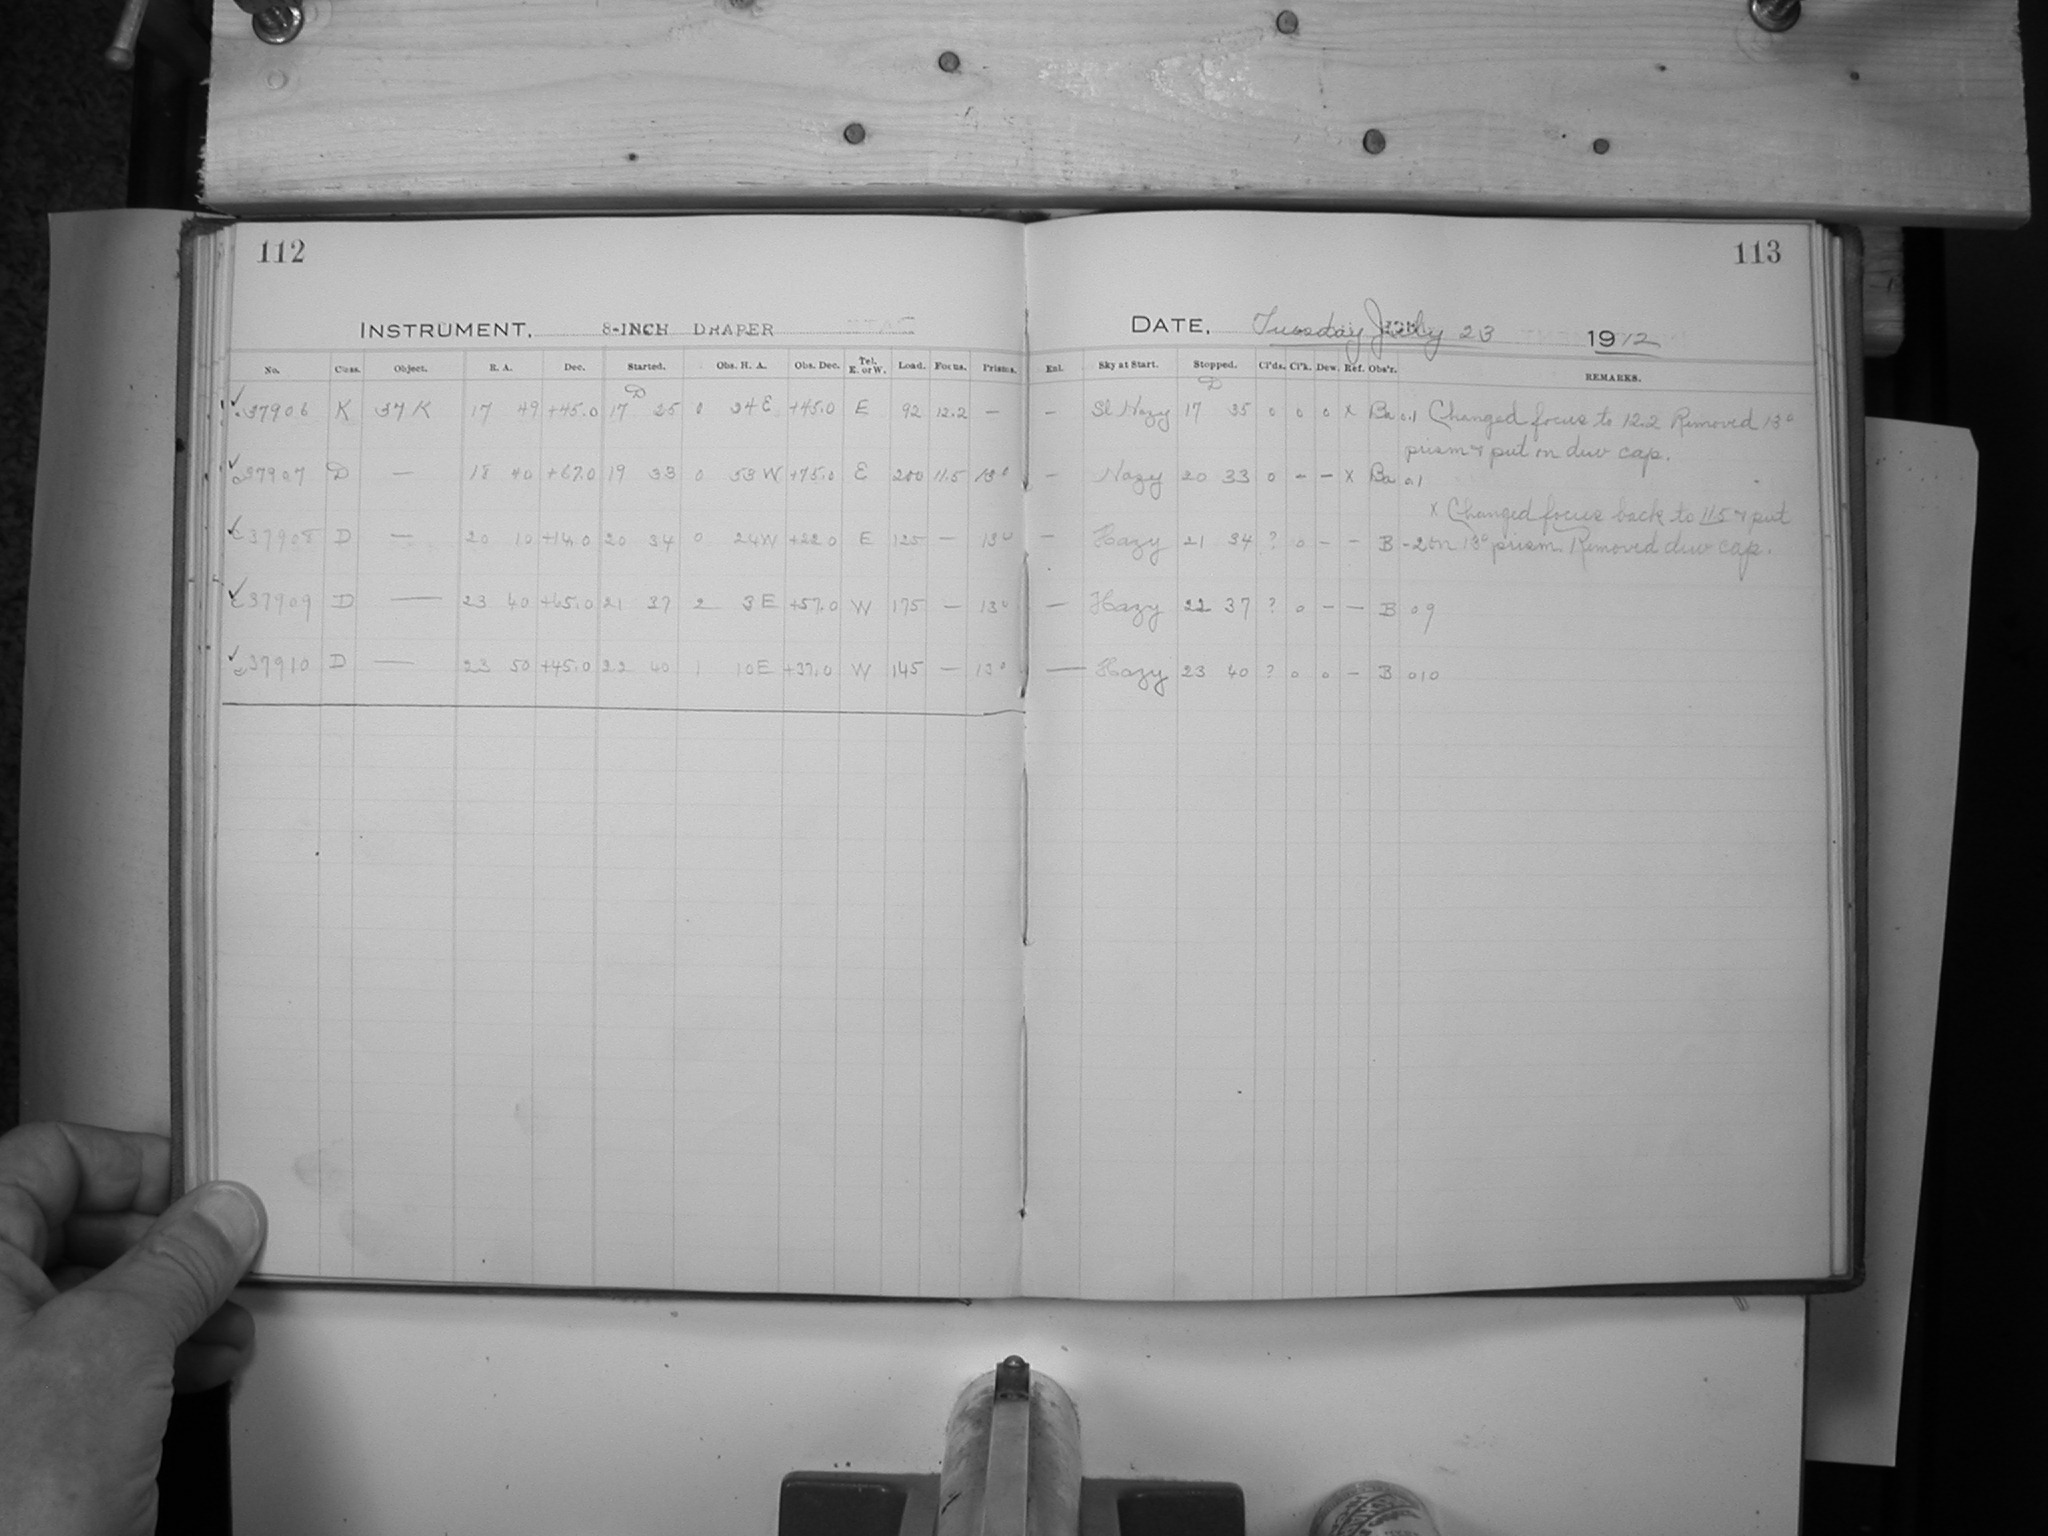 112
113
INSTRUMENT, 8-INCH DRAPER
DATE, Tuesday July 23 1912
No. Class. Object. R. A. Dec. Started. Obs. H. A. Obs. Dec. Tel. E. or W. Load. Focus. Prisms. Enl. Sky at Start. Stopped. Cl'ds. Cl'k. Dew. Ref. Obs'r. REMARKS.
D D
✓ c37906 K 37 K 17 49 +45.0 17 25 0 24 E +45.0 E 92 12.2 — — Sl Hazy 17 35 0 0 0 x Ba 0.1 Changed focus to 12.2 Removed 13°
prism & put on dew cap.
✓ c37907 D — 18 40 +67.0 19 33 0 53 W +75.0 E 200 11.5 13° — Hazy 20 33 0 – – x Ba 0.1
x Changed focus back to 11.5 & put
✓ c37908 D — 20 10 +14.0 20 34 0 24 W +22.0 E 125 — 13° — Hazy 21 34 ? 0 – – B on 13° prism. Removed dew cap.
✓ c37909 D — 23 40 +65.0 21 37 2 3 E +57.0 W 175 — 13° — Hazy 22 37 ? 0 – – B 09
✓ c37910 D — 23 50 +45.0 22 40 1 10 E +37.0 W 145 — 13° — Hazy 23 40 ? 0 0 – B 010